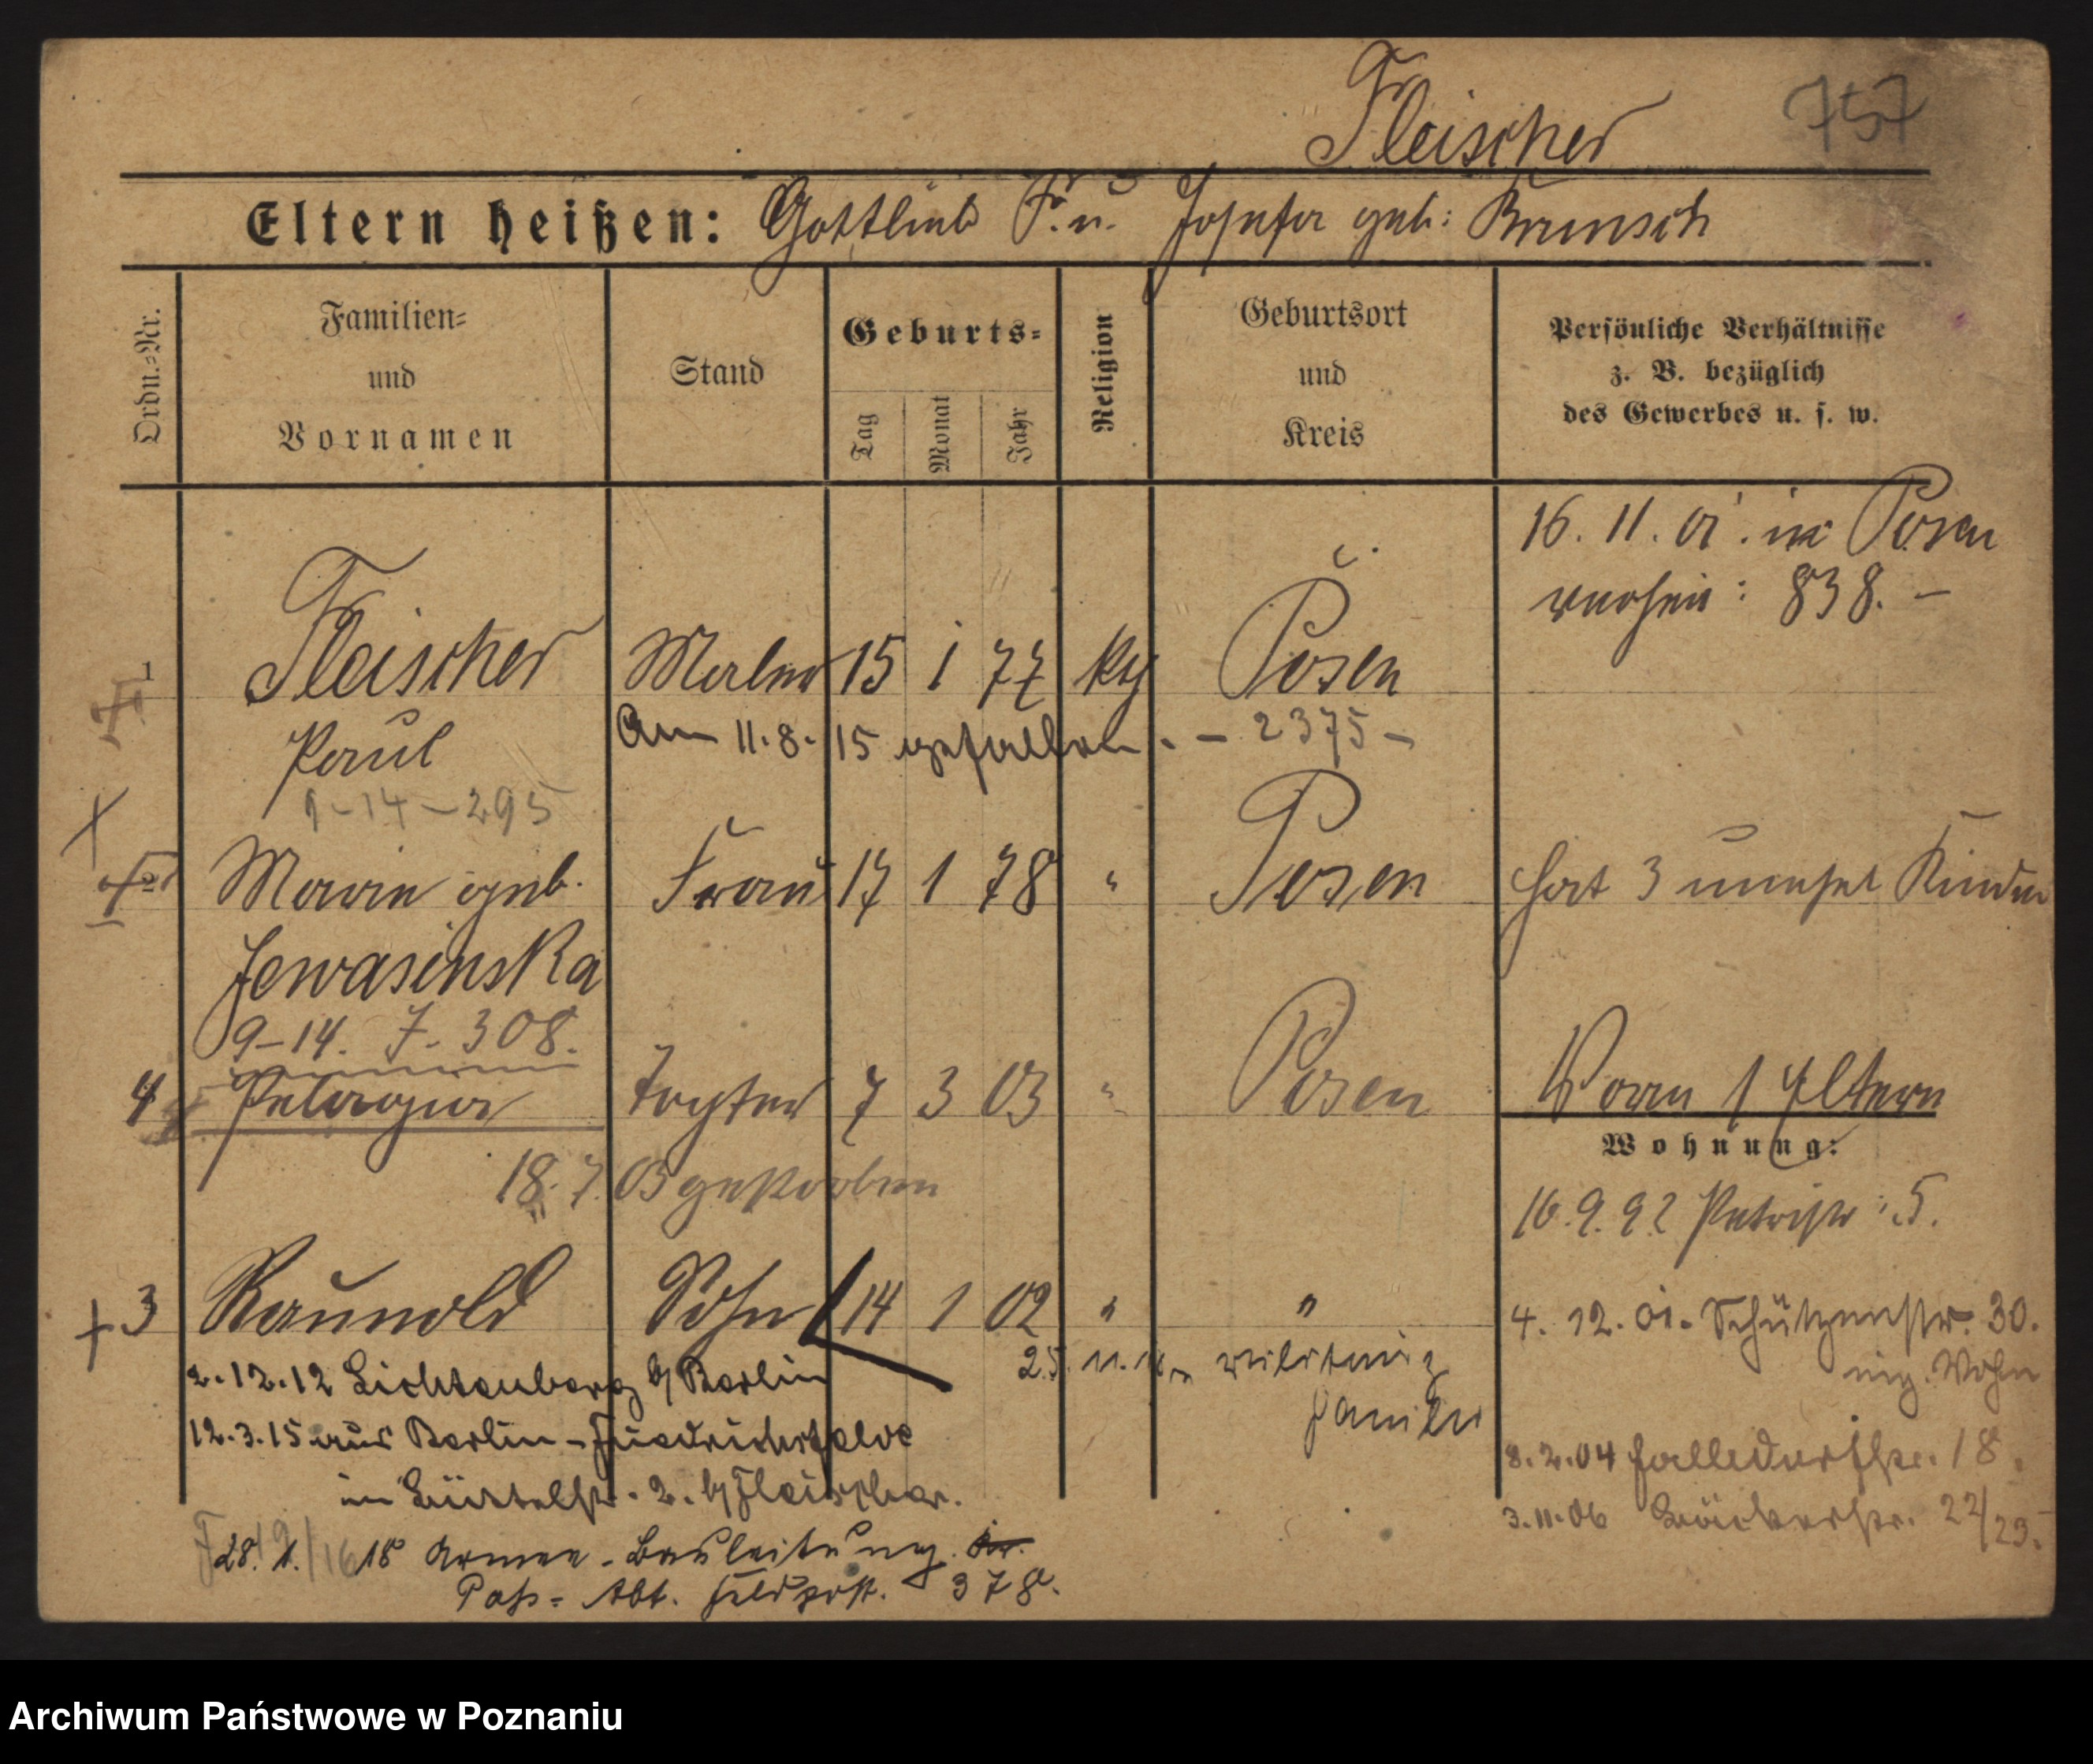 Fleischer
757
Eltern heißen: Gottlieb F. u. Josefa geb: Brunsch
Ordn.-Nr.
Familien-
und
Vornamen
Stand
Geburts-
Tag
Monat
Jahr
Religion
Geburtsort
und
Kreis
Persönliche Verhältnisse
z. B. bezüglich
des Gewerbes u. s. w.
16. 11. 01. in Posen
838. –
1 Fleischer Maler 15 1 77 Posen
Paul
Am 11. 8. 15 gefallen. – 2375 –
9-14-295
2 Marie geb. Frau 17 1 78 " Posen hat 3 Kinder
Jewasinska
9-14. 7. 308.
4 Pelagia Tochter 7 3 03 " Posen Vorn 1 Eltern
Wohnung:
18. 7. 03 gestorben
16. 9. 92 Petristr. 5.
3 Sohn 14 1 02 " "
4. 12. 01. Schützenstr. 30.
eig. Wohn
2. 12. 12 Lichtenberg b/ Berlin
25. 11.
Familie
12. 3. 15 aus Berlin-Friedrichsfelde
8. 2. 04 Halldorfstr. 18.
2. b/ Fleischer.
3. 11. 06 Bäckerstr. 22/23.
28. 1. 18 Armee-Bauleitung.
Paß-Abt. Feldpost. 378.
Archiwum Państwowe w Poznaniu